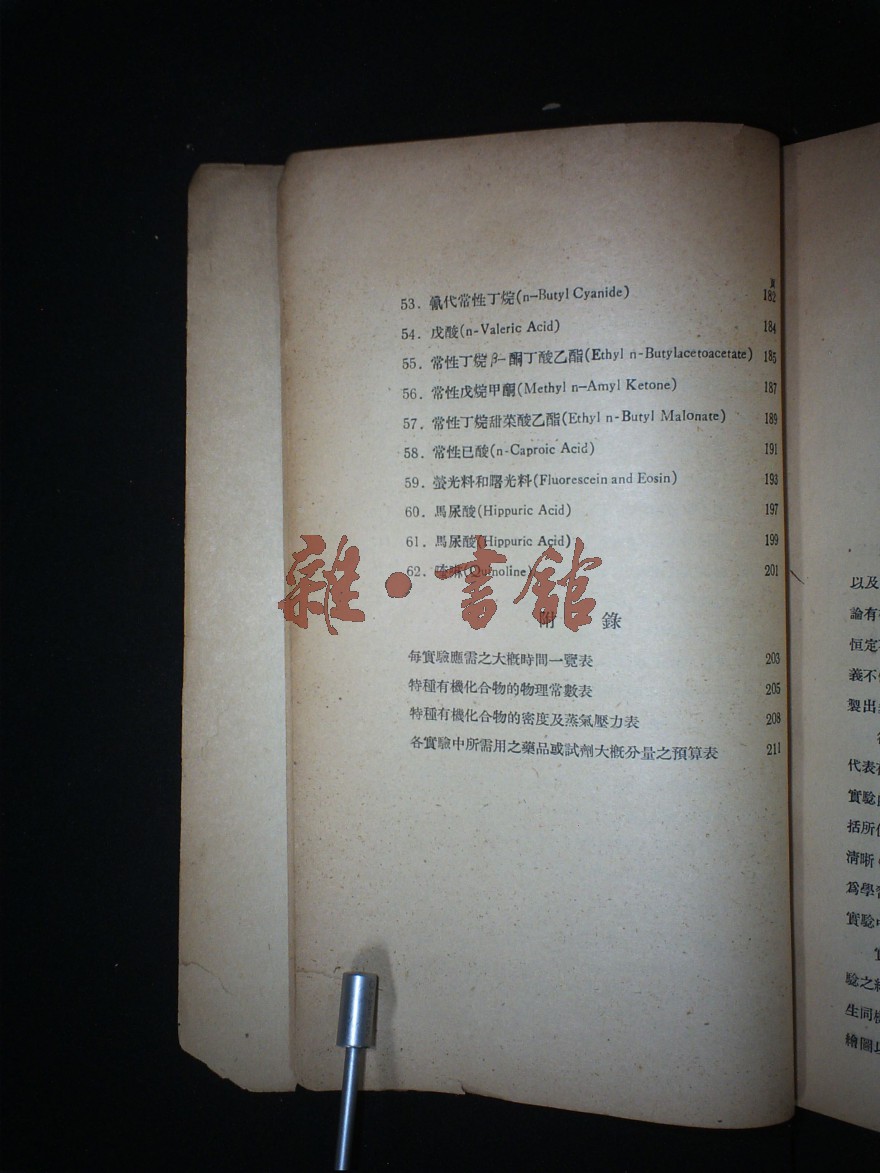 頁
53. 氰代常性丁烷(n-Butyl Cyanide) 182
54. 戊酸(n-Valeric Acid) 184
55. 常性丁烷β-酮丁酸乙酯(Ethyl n-Butylacetoacetate) 185
56. 常性戊烷甲酮(Methyl n-Amyl Ketone) 187
57. 常性丁烷甜菜酸乙酯(Ethyl n-Butyl Malonate) 189
58. 常性已酸(n-Caproic Acid) 191
59. 螢光料和曙光料(Fluorescein and Eosin) 193
60. 馬尿酸(Hippuric Acid) 197
61. 馬尿酸(Hippuric Acid) 199
62. 啉(Quinoline) 201
附錄
每實驗應需之大概時間一覽表 203
特種有機化合物的物理常數表 205
特種有機化合物的密度及蒸氣壓力表 208
各實驗中所需用之藥品或試劑大概分量之預算表 211
雜·書館
以及
論有
恒定
義不
製出
代表
實驗
括所
清晰
爲學
實驗
驗之
生同
繪圖